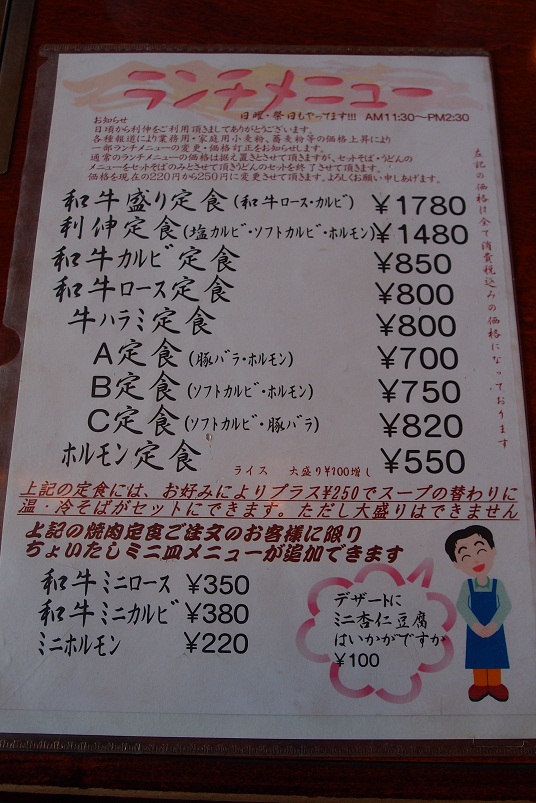 ランチメニュー
日曜・祭日もやってます!!! AM11:30〜PM2:30
お知らせ
日頃から利伸をご利用頂きましてありがとうございます。
各種報道により業務用・家庭用小麦粉、蕎麦粉等の価格上昇により
一部ランチメニューの変更・価格訂正をお知らせします。
通常のランチメニューの価格は据え置きとさせて頂きますが、セットそば・うどんの
メニューをセットそばのみとさせて頂きうどんのセットを終了させて頂きます。
価格を現在の220円から250円に変更させて頂きます。よろしくお願い申しあげます。
左記の価格は全て消費税込みの価格になっております
和牛盛り定食(和牛ロース・カルビ) ¥1780
利伸定食(塩カルビ・ソフトカルビ・ホルモン) ¥1480
和牛カルビ定食 ¥850
和牛ロース定食 ¥800
牛ハラミ定食 ¥800
A定食(豚バラ・ホルモン) ¥700
B定食(ソフトカルビ・ホルモン) ¥750
C定食(ソフトカルビ・豚バラ) ¥820
ホルモン定食 ¥550
ライス 大盛り¥100増し
上記の定食には、お好みによりプラス¥250でスープの替わりに
温・冷そばがセットにできます。ただし大盛りはできません
上記の焼肉定食ご注文のお客様に限り
ちょいたしミニ皿メニューが追加できます
和牛ミニロース ¥350
和牛ミニカルビ ¥380
ミニホルモン ¥220
デザートに
ミニ杏仁豆腐
はいかがですか
¥100